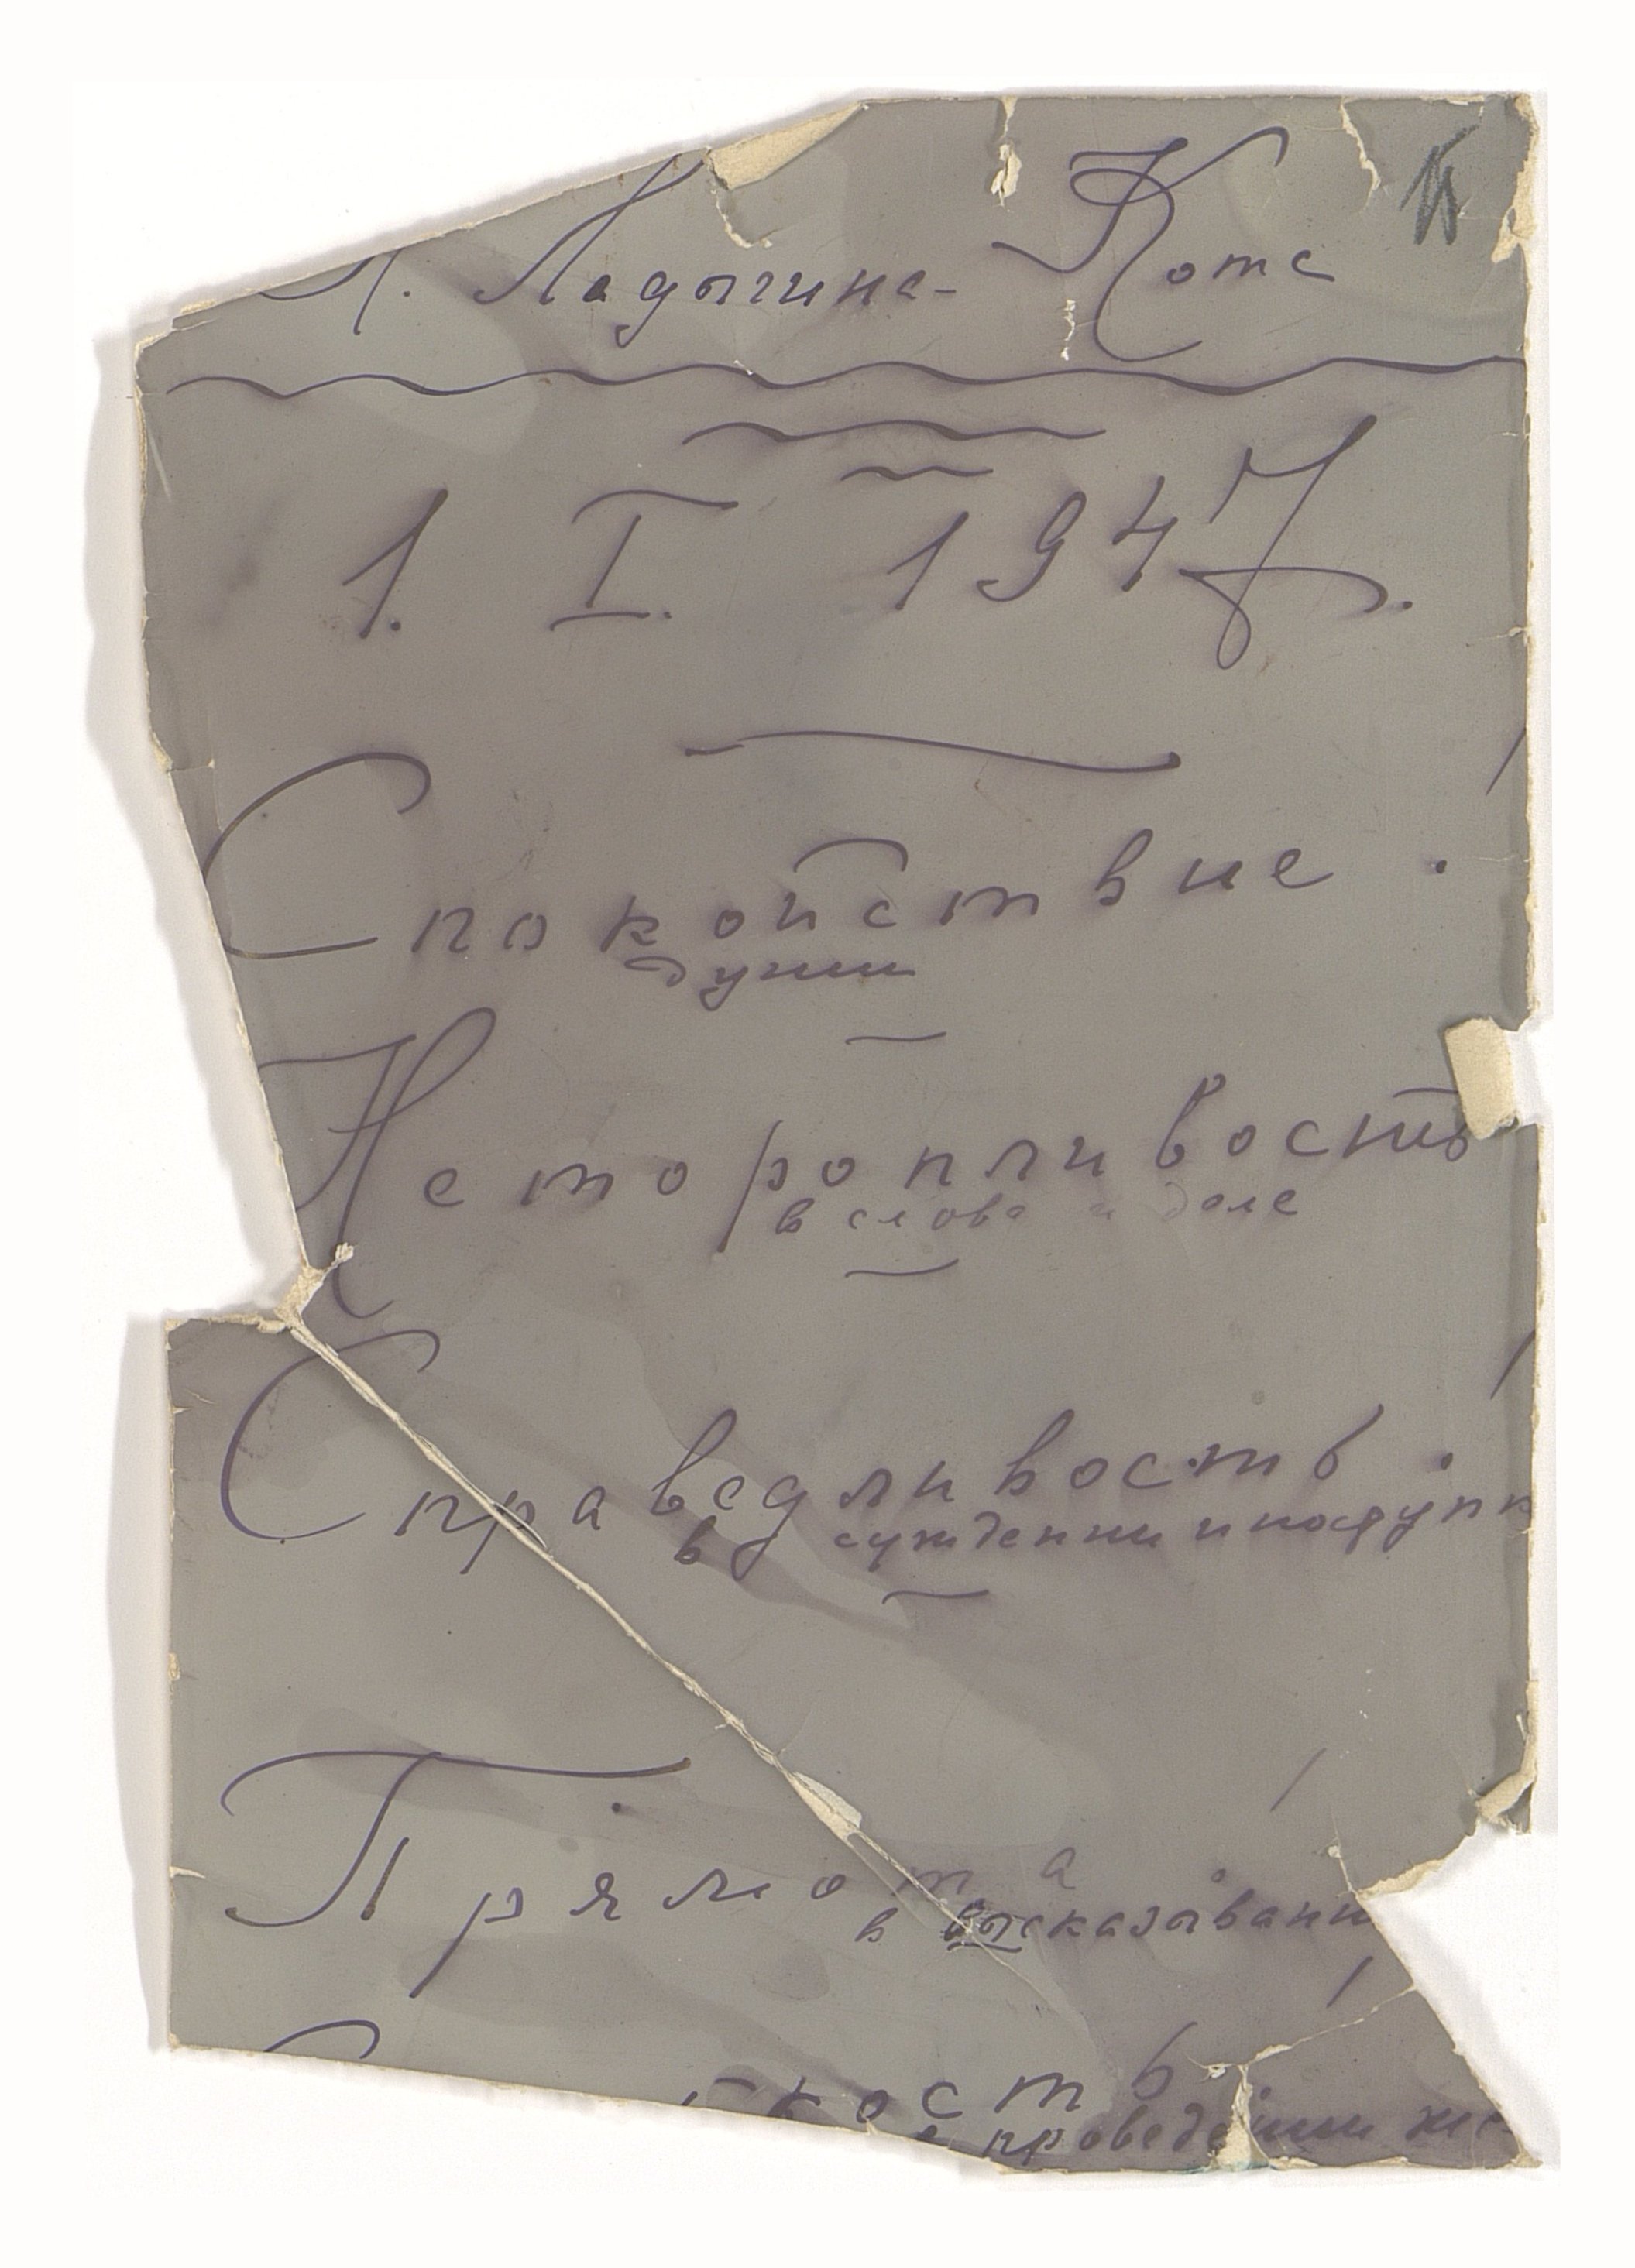 Н. Ладыгина-Котс
1. I. 1947.
Спокойствие!
души
Неторопливость
в слове и деле
Справедливость!
в суждении и поступк
Прямота!
в высказывани
кость!
в проведении